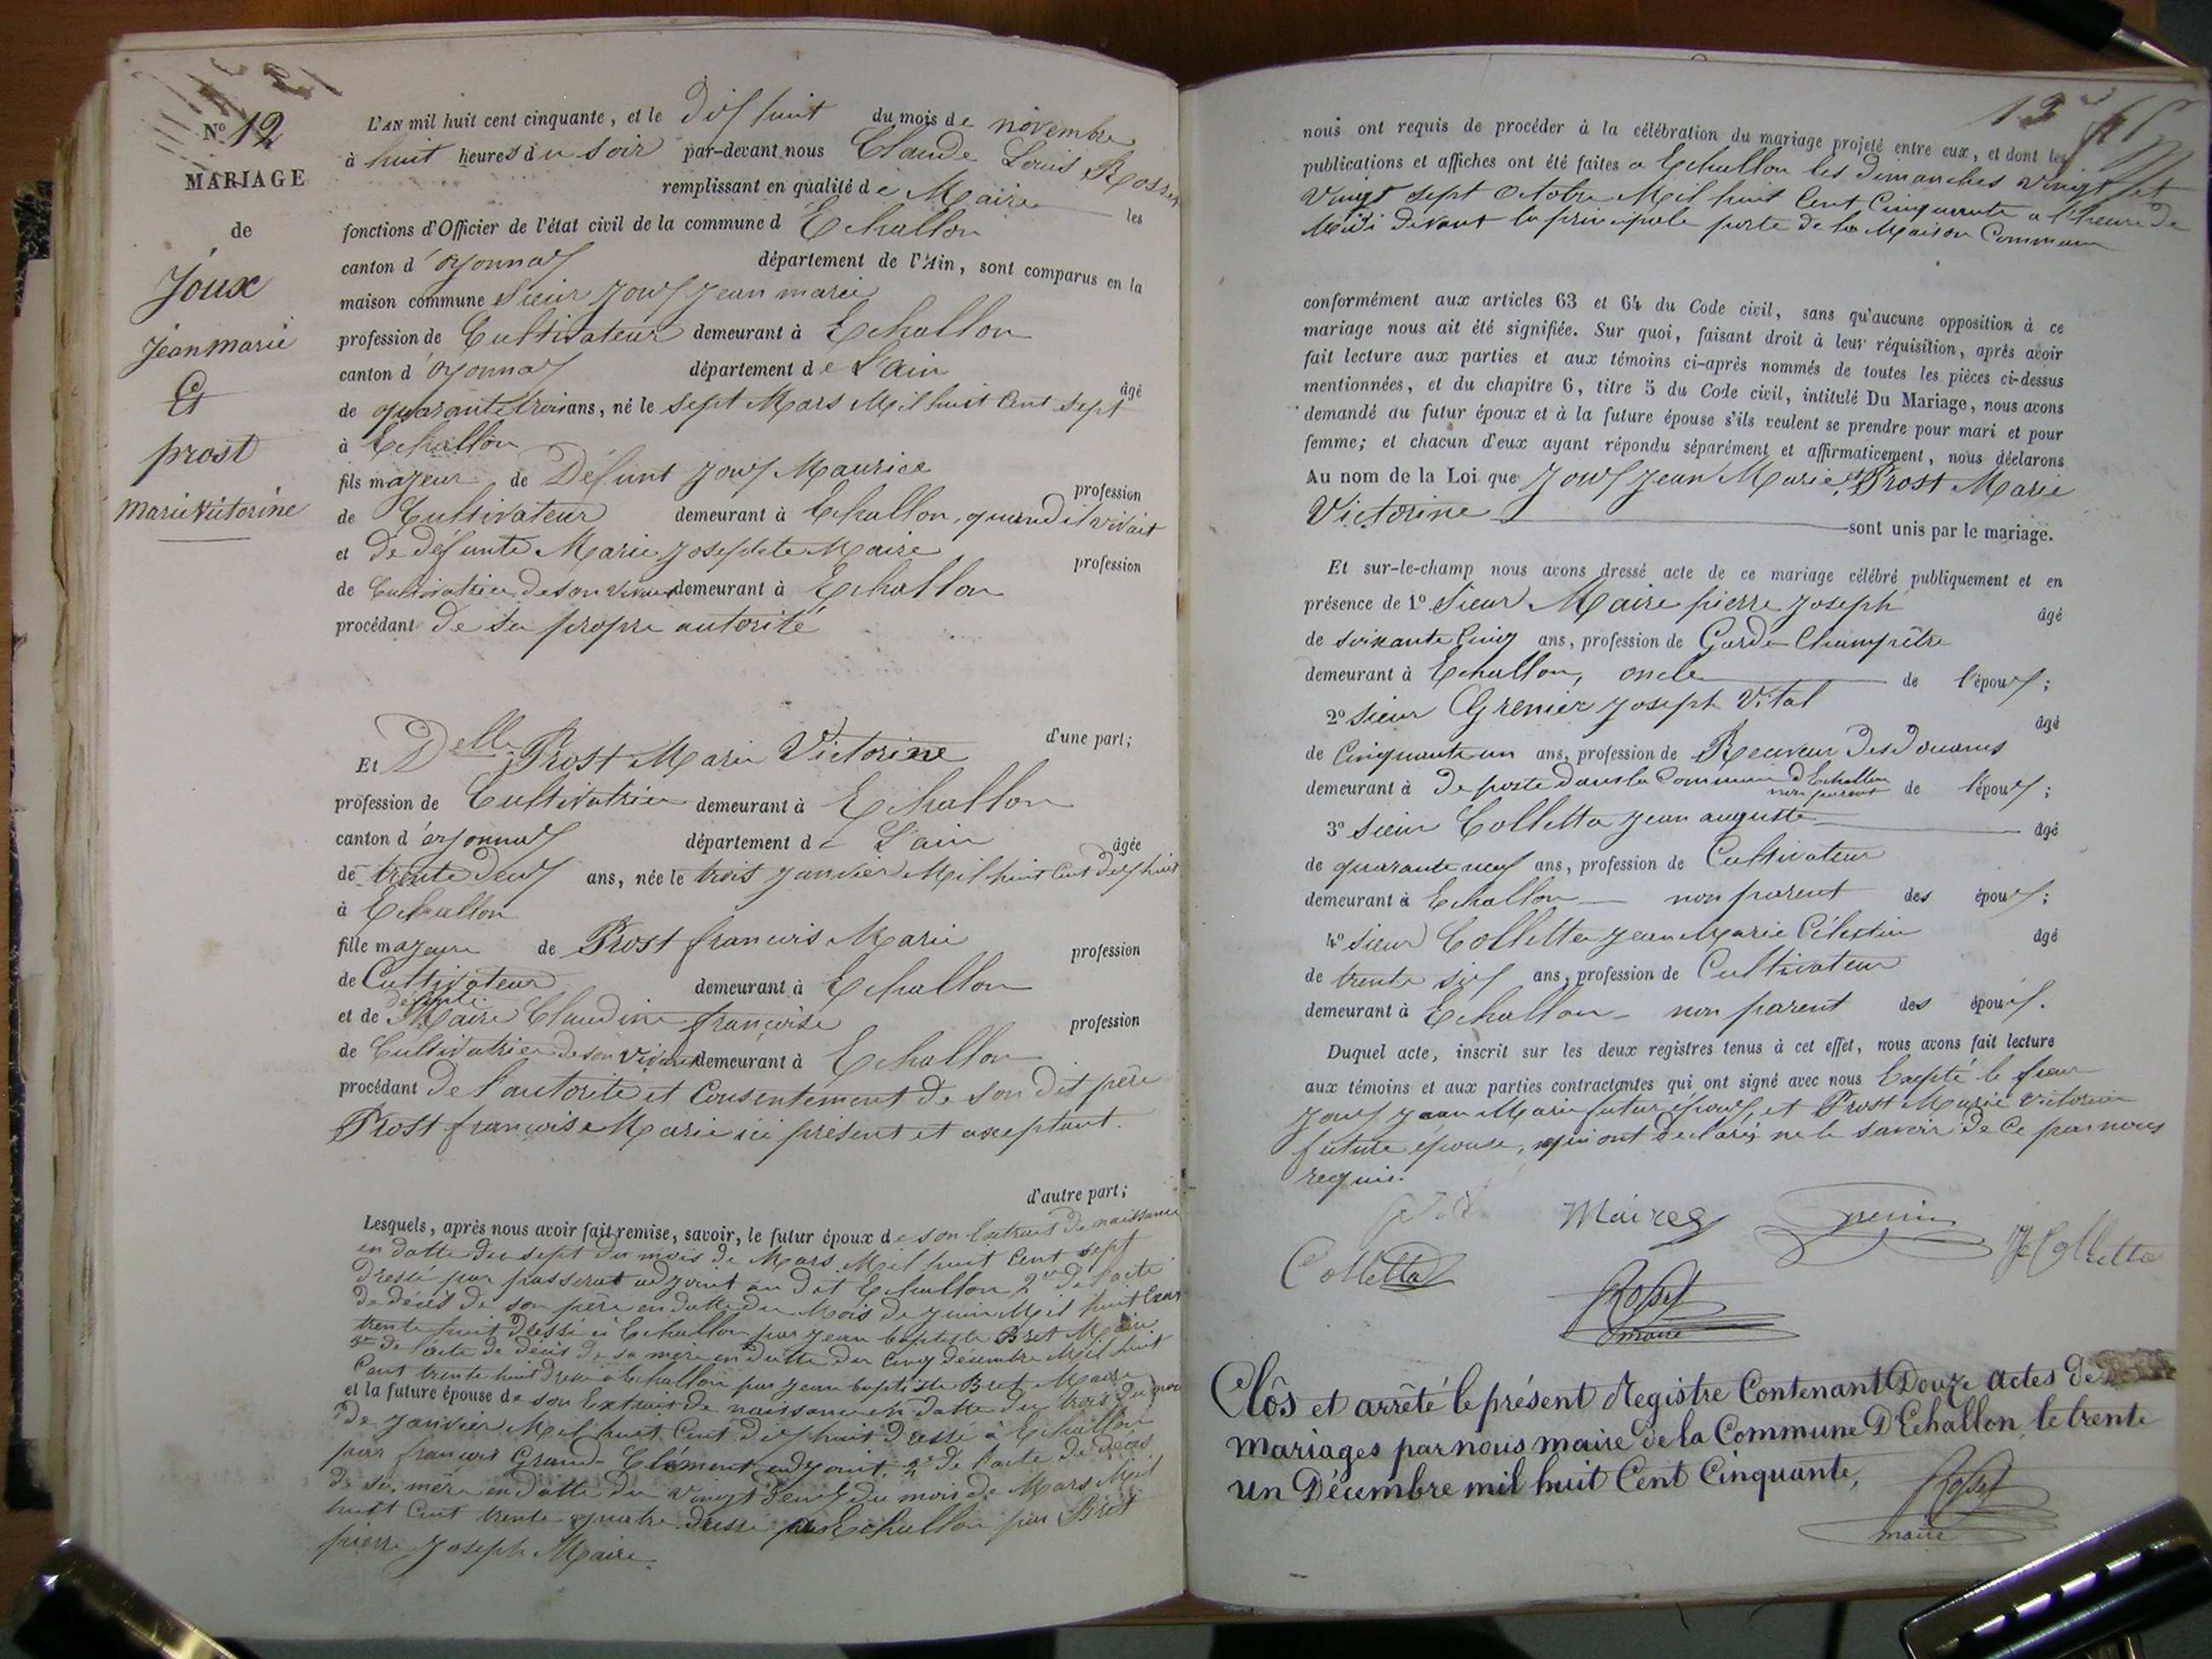 No 12
MARIAGE
de
Joux
jean marie
Et
prost
marie victorine
L'AN mil huit cent cinquante, et le dix huit du mois de novembre
à huit heures du soir par-devant nous Claude Louis Rosset
remplissant en qualité de Maire les
fonctions d'Officier de l'état civil de la commune d'Echallon
canton d'oyonnax département de l'Ain, sont comparus en la
maison commune Sieur Joux Jean marie
profession de Cultivateur demeurant à Echallon
canton d'oyonnax département de L'ain âgé
de quarante trois ans, né le sept Mars Mil huit Cent sept
à Echallon
fils majeur de Défunt Joux Maurice profession
de Cultivateur demeurant à Echallon, quand il vivait
et de défunte Marie Josephte Maire profession
de Cultivatrice de son vivant demeurant à Echallon
procédant de sa propre autorité
d'une part;
Et Delle Prost Marie Victorine
profession de Cultivatrice demeurant à Echallon
canton d'oyonnax département de L'ain âgée
de trente deux ans, née le trois janvier Mil huit Cent dix huit
à Echallon
fille majeure de Prost francois Marie profession
de Cultivateur demeurant à Echallon
et de défunte Maire Claudine françoise profession
de Cultivatrice de son vivant demeurant à Echallon
procédant de l'autorité et Consentement de son dit père
Prost francoise Marie ici présent et acceptant.
d'autre part;
Lesquels, après nous avoir fait remise, savoir, le futur époux de son Extrait de naissance
en datte du sept du mois de Mars Mil huit Cent sept
Dressé par passerat adjoint au dit Echallon 2e de l'acte
de décès de son père en datte du Mois de juin Mil huit Cent
trente huit Dressé à Echallon par Jean baptiste Bret Maire
3e de l'acte de décès de sa mère en datte du Cinq décembre Mil huit
Cent trente huit dressé à Echallon par jean baptiste Bret Maire
et la future épouse de son Extrait de naissance en datte du trois du mois
de janvier Mil huit Cent dix huit dressé à Echallon
par francois Grand-Clément adjoint, 2e de l'acte de décès
de sa mère en datte du vingt deux du mois de Mars Mil
huit Cent trente quatre dressé à Echallon par Bret
pierre Joseph Maire.
13
nous ont requis de procéder à la célébration du mariage projeté entre eux, et dont les
publications et affiches ont été faites à Echallon les dimanches vingt et
vingt sept octobre Mil huit Cent Cinquante a l'heure de
Midi devant la principale porte de la Maison Commune
conformément aux articles 63 et 64 du Code civil, sans qu'aucune opposition à ce
mariage nous ait été signifiée. Sur quoi, faisant droit à leur réquisition, après avoir
fait lecture aux parties et aux témoins ci-après nommés de toutes les pièces ci-dessus
mentionnées, et du chapitre 6, titre 5 du Code civil, intitulé Du Mariage, nous avons
demandé au futur époux et à la future épouse s'ils veulent se prendre pour mari et pour
femme; et chacun d'eux ayant répondu séparément et affirmativement, nous déclarons
Au nom de la Loi que Joux Jean Marie et Prost Marie
Victorine sont unis par le mariage.
Et sur-le-champ nous avons dressé acte de ce mariage célébré publiquement et en
présence de 1º Sieur Maire pierre Joseph âgé
de soixante Cinq ans, profession de Garde Champêtre
demeurant à Echallon, oncle de l'époux;
2º Sieur Grenier Joseph Vital âgé
de Cinquante un ans, profession de Receveur Des Douanes
demeurant à De poste dans la Commune d'Echallon non parent de l'époux;
3º Sieur Colletta Jean auguste âgé
de quarante neuf ans, profession de Cultivateur
demeurant à Echallon non parent des époux;
4º Sieur Colletta Jean Marie Célestin âgé
de trente six ans, profession de Cultivateur
demeurant à Echallon non parent des époux.
Duquel acte, inscrit sur les deux registres tenus à cet effet, nous avons fait lecture
aux témoins et aux parties contractantes qui ont signé avec nous Excepté le sieur
Joux Jean Marie futur époux, et Prost Marie Victorine
future épouse, qui ont déclaré ne le savoir de ce par nous
requis.
Maire
Grenier
J Colletta
Colletta
Rosset
maire
Clôs et arrêté le présent Registre Contenant Douze actes de
mariages par nous maire de la Commune D'Echallon, le trente
un Décembre mil huit Cent Cinquante,
Rosset
maire